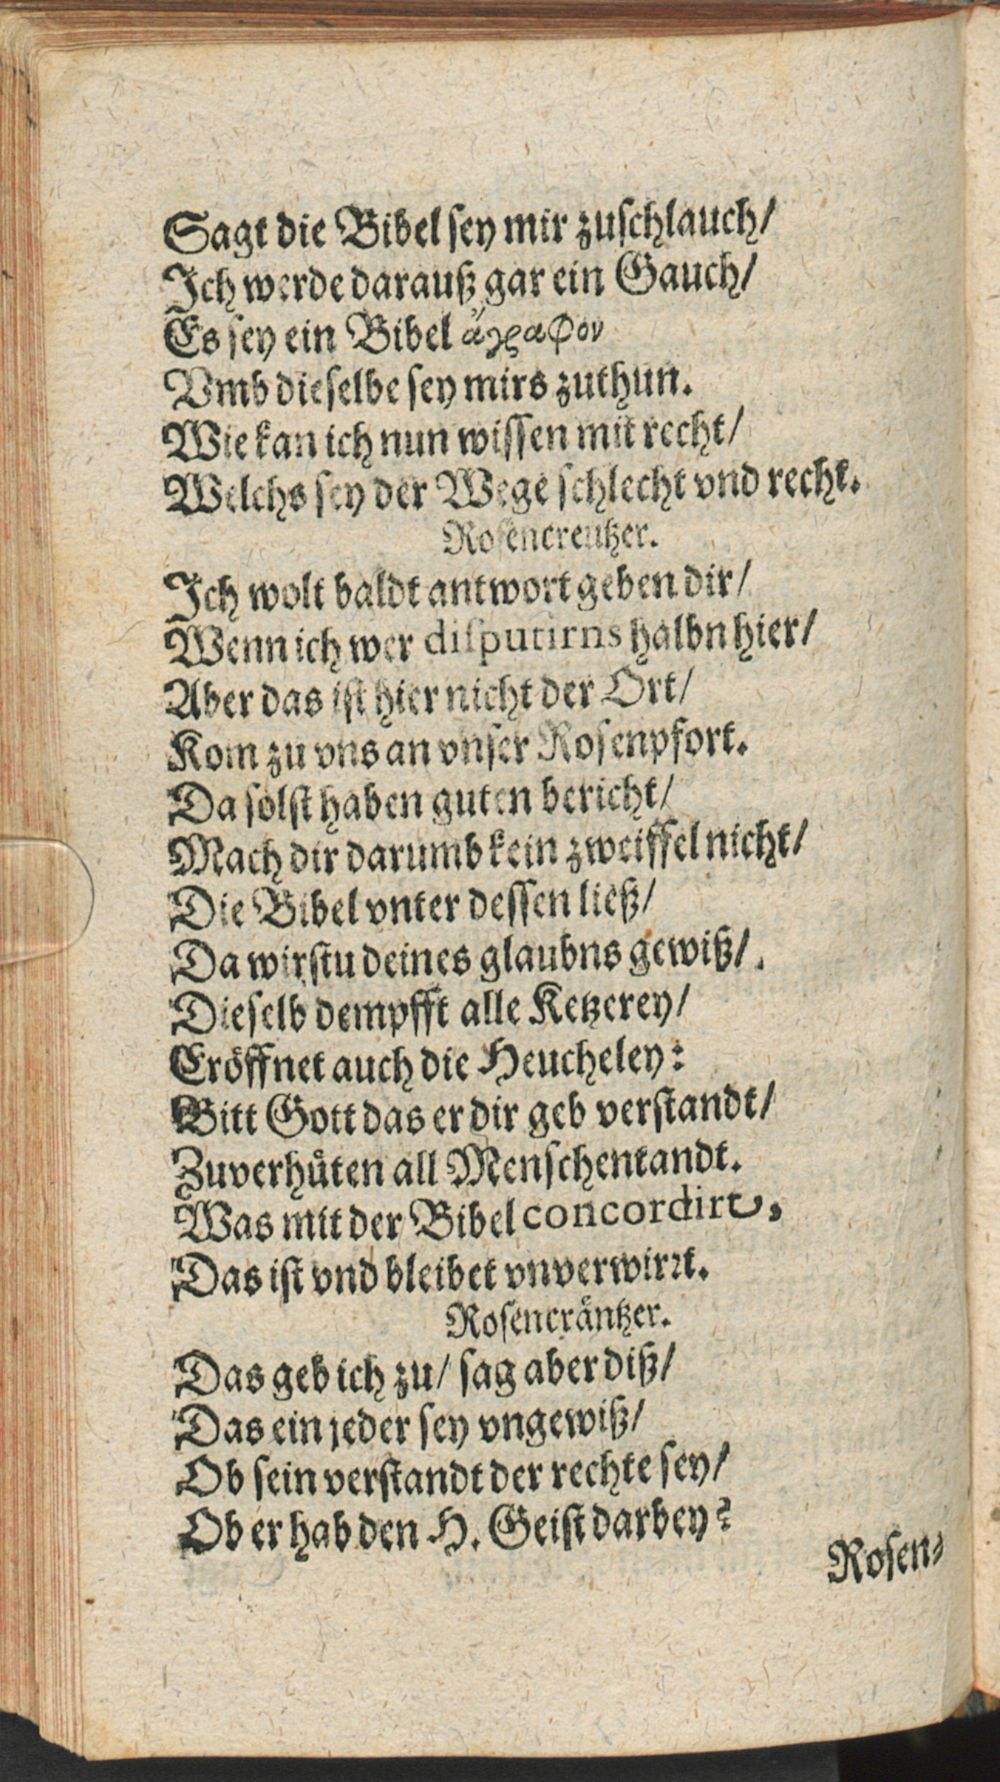 Sagt die Bibel sey mir zuschlauch/
Ich werde darauß gar ein Gauch/
Es sey ein Bibel ἄγραφον
Vmb dieselbe sey mirs zuthun.
Wie kan ich nun wissen mit recht/
Welchs sey der Wege schlecht vnd recht.
Rosencreutzer.
Ich wolt baldt antwort geben dir/
Wenn ich wer disputirns halbn hier/
Aber das ist hier nicht der Ort/
Kom zu vns an vnser Rosenpfort.
Da solst haben guten bericht/
Mach dir darumb kein zweiffel nicht/
Die Bibel vnter dessen ließ/
Da wirstu deines glaubns gewiß/.
Dieselb dempfft alle Ketzerey/
Eröffnet auch die Heucheley:
Bitt Gott das er dir geb verstandt/
Zuverhüten all Menschentandt.
Was mit der Bibel concordirt,
Das ist vnd bleibet vnverwirrt.
Rosencräntzer.
Das geb ich zu/ sag aber diß/
Das ein jeder sey vngewiß/
Ob sein verstandt der rechte sey/
Ob er hab den H. Geist darbey?
Rosen-